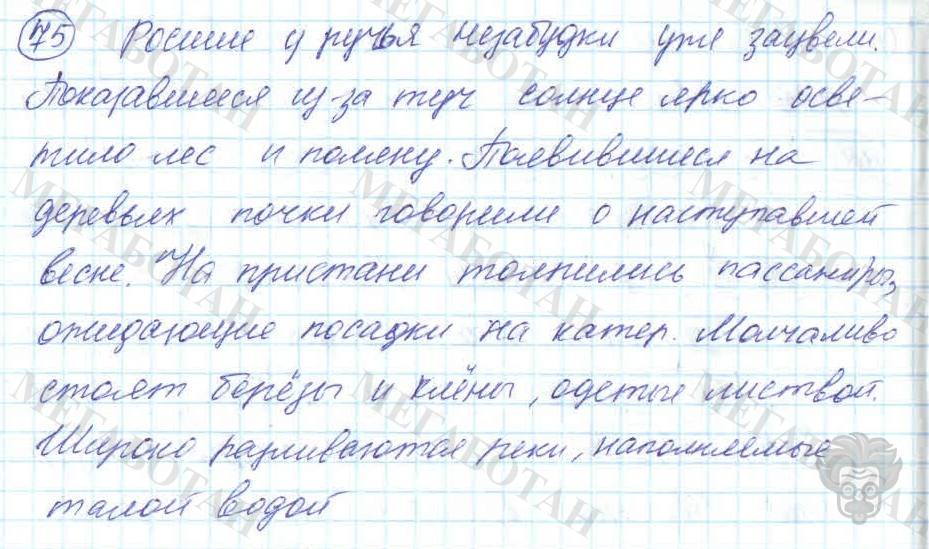 75 Росшие у ручья незабудки уже зацвели.
Показавшееся из-за туч солнце ярко осве-
тило лес и поляну. Появившиеся на
деревьях почки говорили о наступавшей
весне. На пристани толпились пассажиры,
ожидающие посадки на катер. Молчаливо
стоят берёзы и клёны, одетые листвой.
Широко разливаются реки, наполняемые
талой водой
МЕГАБОТАН